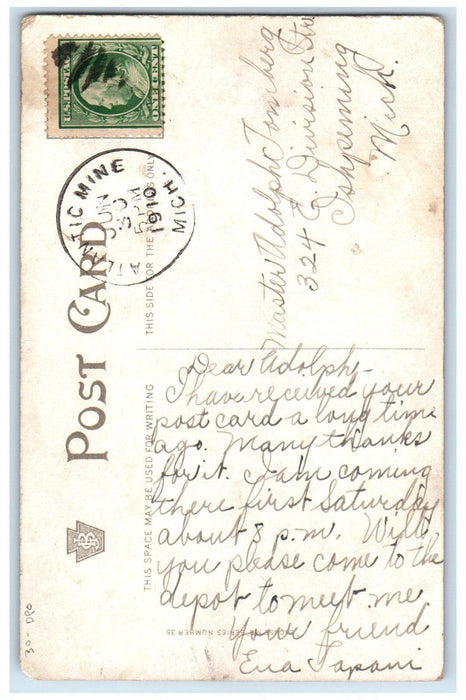 U.S. POSTAGE
ONE CENT
ATLANTIC MINE
JUN
30
5 PM
1910
MICH.
POST CARD
THIS SIDE FOR THE ADDRESS ONLY
THIS SPACE MAY BE USED FOR WRITING
Master Adolph Tomberg
324 E. Division Str.
Ishpeming
Mich.
Dear Adolph -
I have received your
post card a long time
ago. Many thanks
for it. I am coming
there first Saturday
about 3 p.m. Will
you please come to the
depot to meet me
Your friend
SERIES NUMBER 38
30- DPO